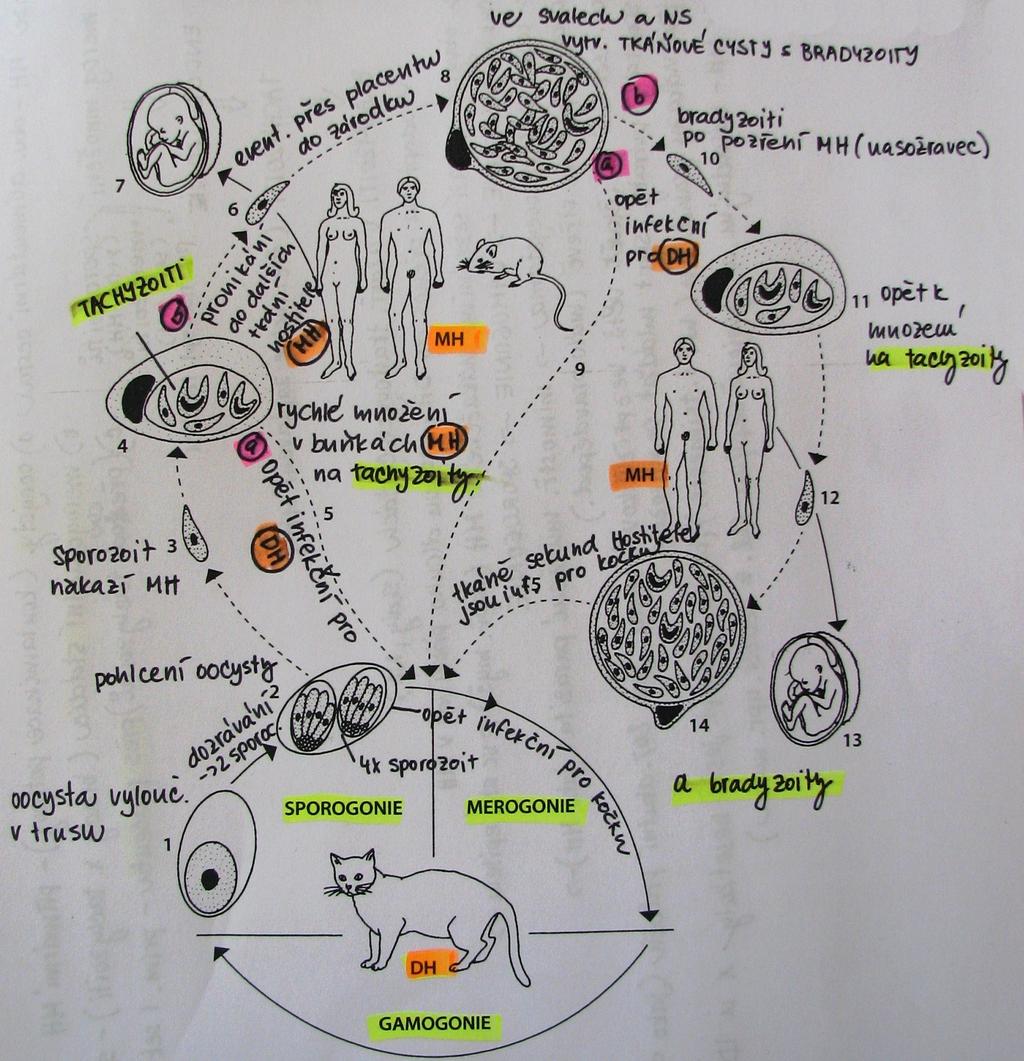 ve svalech a NS
vytv. TKÁŇOVÉ CYSTY S BRADYZOITY
8
b
bradyzoiti
po pozření MH (nasožravec)
10
event. přes placentu
do zárodku
7
6
a
opět
infekční
pro DH
TACHYZOITI
b
pronikání
do dalších
tkání
hostitele
MH
MH
11 opět k
množení
na tachyzoity
9
4
a
rychlé množení
v buňkách MH
na tachyzoity
5
Opět infekční pro
DH
MH
12
Sporozoit 3
nakazí MH
tkáně sekund hostitele
jsou inf. pro kočku
pohlcení oocysty
2
dozrávání
->2 sporoc.
opět infekční pro kočku
4x sporozoit
14
13
oocysta vylouč.
v trusu
1
SPOROGONIE
MEROGONIE
a bradyzoity
DH
GAMOGONIE